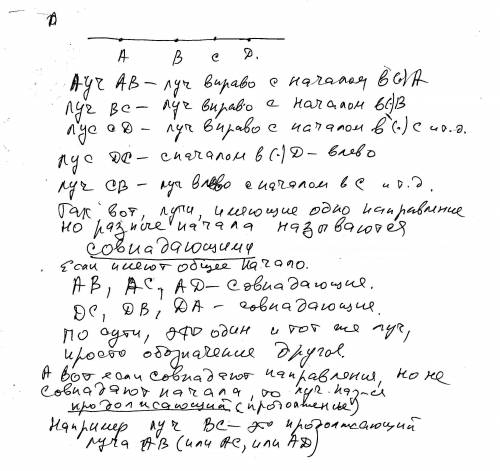 A B C D.
Луч AB – луч вправо с началом в (·) A
луч BC – луч вправо с началом в (·) B
луч CD – луч вправо с началом в (·) C и т.д.
луч DC – с началом в (·) D – влево
луч CB – луч влево с началом в C и т.д.
Так вот, лучи, имеющие одно направление
но разные начала называются
совпадающими
Если имеют общее начало.
AB, AC, AD – совпадающие.
DC, DB, DA – совпадающие.
По сути, это один и тот же луч,
просто обозначение другое.
А вот если совпадают направления, но не
совпадают начала, то луч назыв
продолжающий (продолжение)
Например луч BC – это продолжающий
луча AB (или AC, или AD)